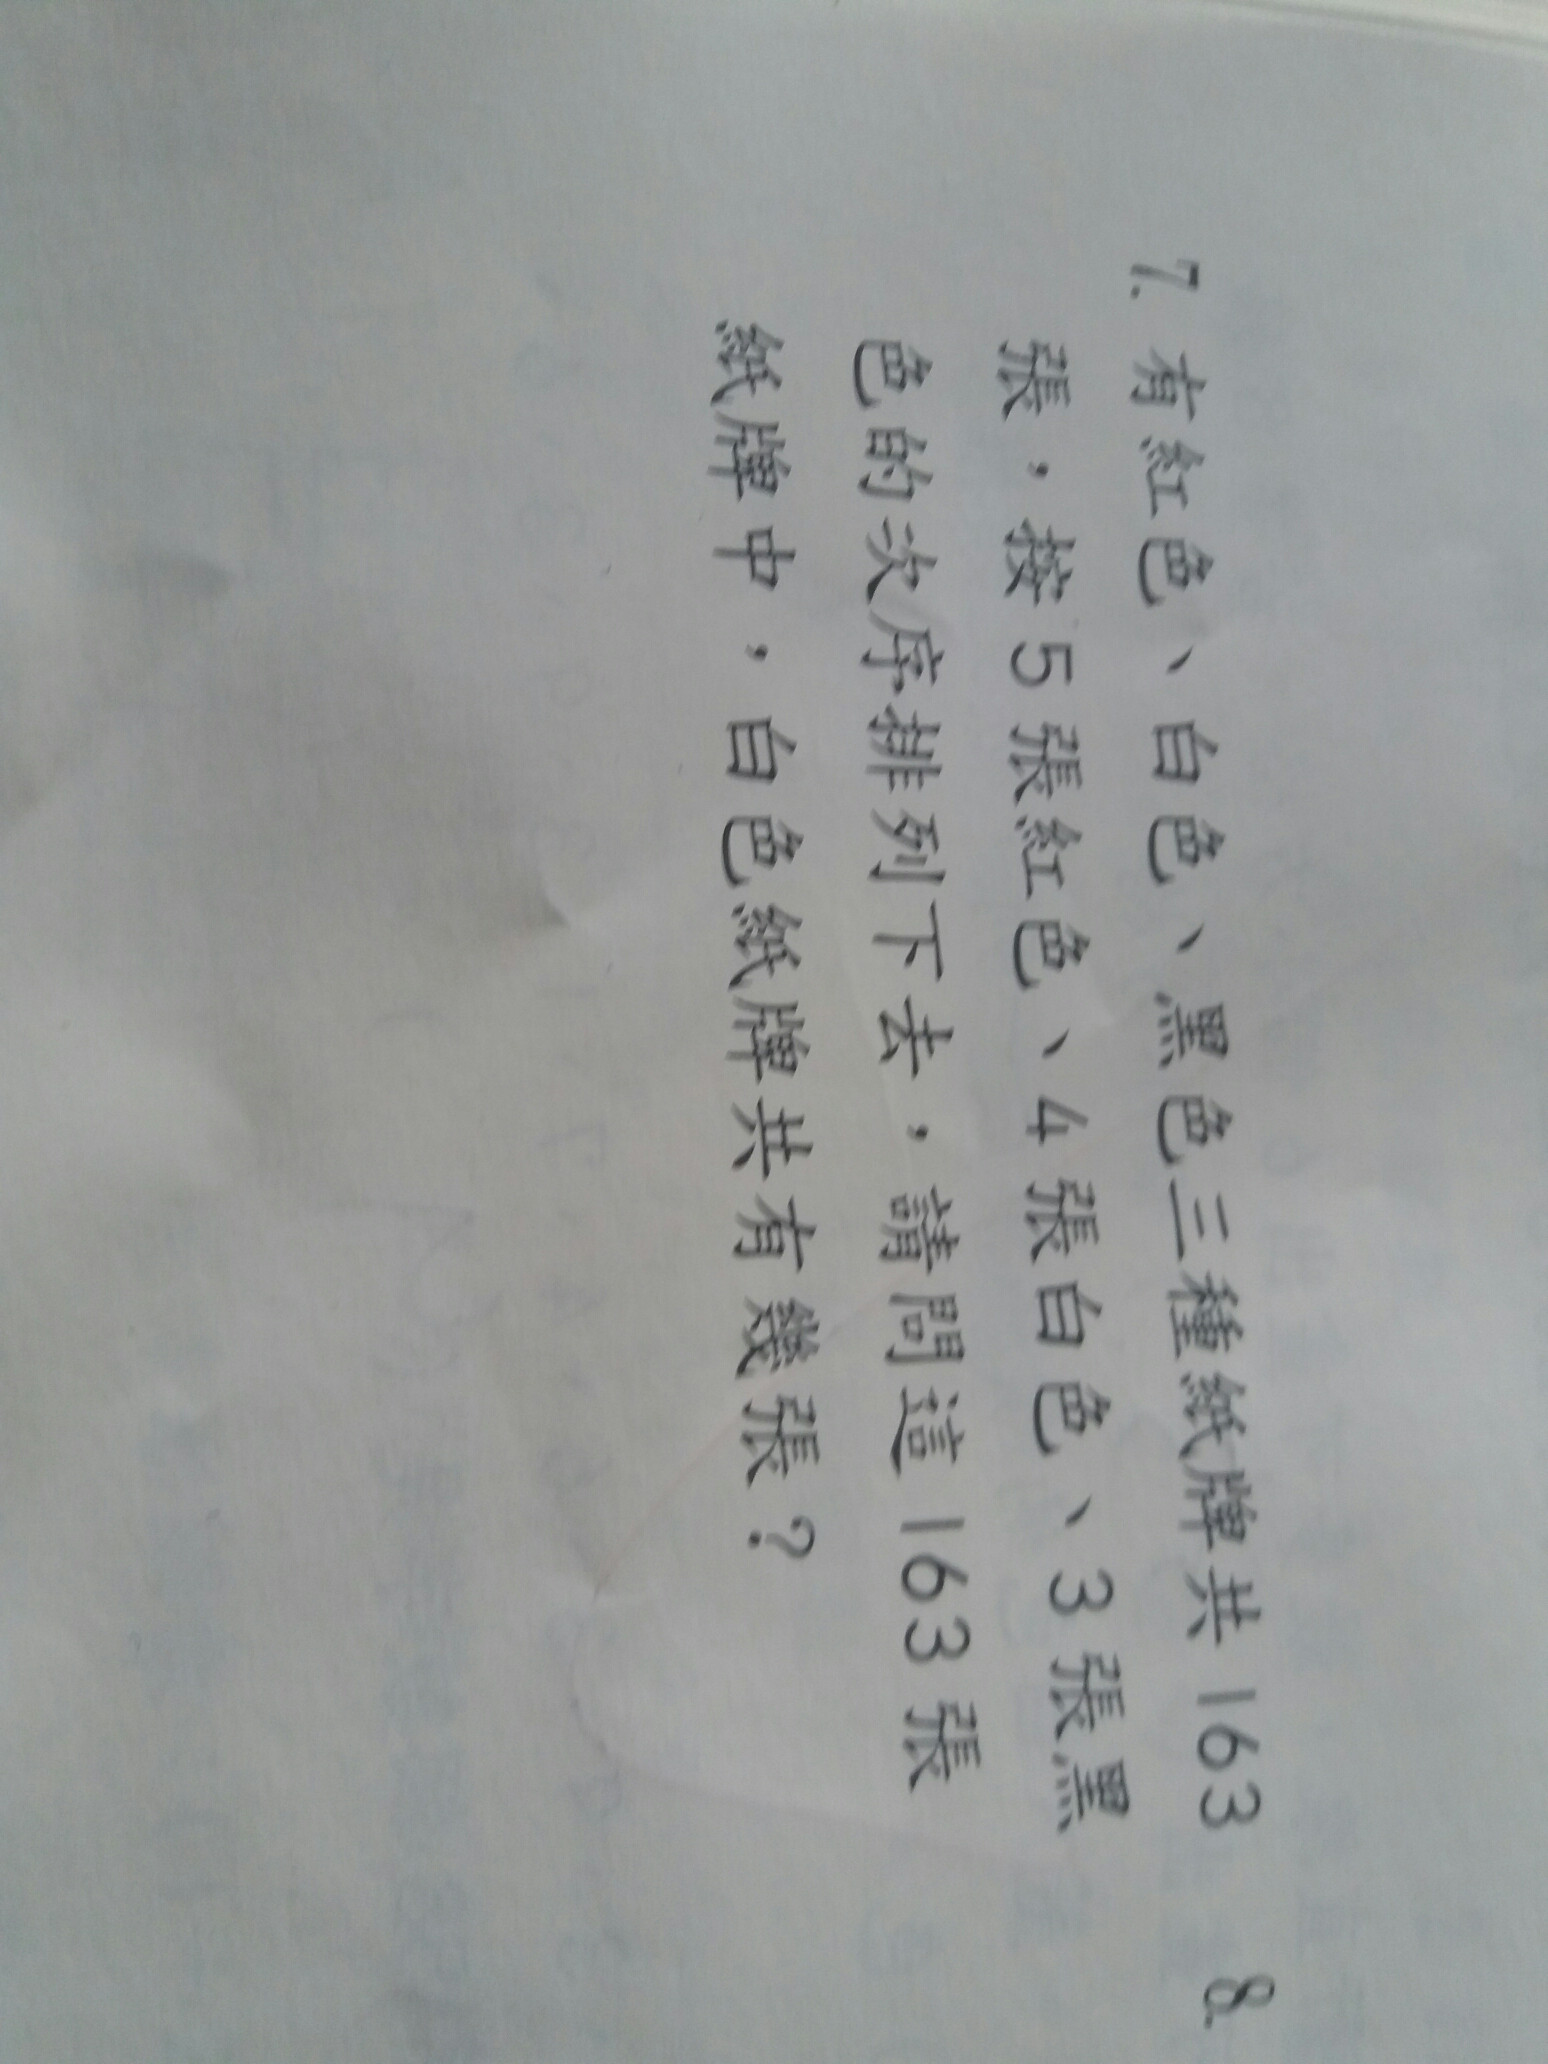 7. 有紅色、白色、黑色三種紙牌共 163
張，按 5 張紅色、4 張白色、3 張黑
色的次序排列下去，請問這 163 張
紙牌中，白色紙牌共有幾張？
8.